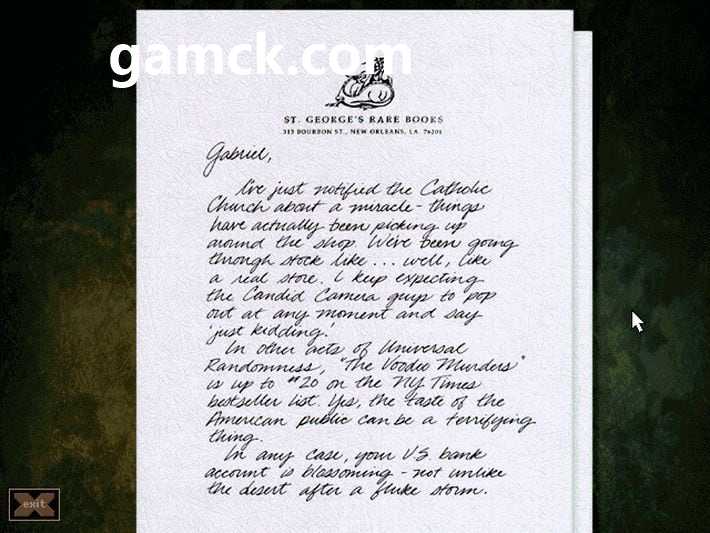 gamck.com
ST. GEORGE'S RARE BOOKS
315 BOURBON ST., NEW ORLEANS, LA. 76201
Gabriel,
I've just notified the Catholic
Church about a miracle - things
have actually been picking up
around the shop. We've been going
through stock like ... well, like
a real store. I keep expecting
the Candid Camera guys to pop
out at any moment and say
'just kidding.'
In other acts of Universal
Randomness, "The Voodoo Murders"
is up to #20 on the NY Times
bestseller list. Yes, the taste of the
American public can be a terrifying
thing.
In any case, your U.S. bank
account is blossoming - not unlike
the desert after a fluke storm.
exit